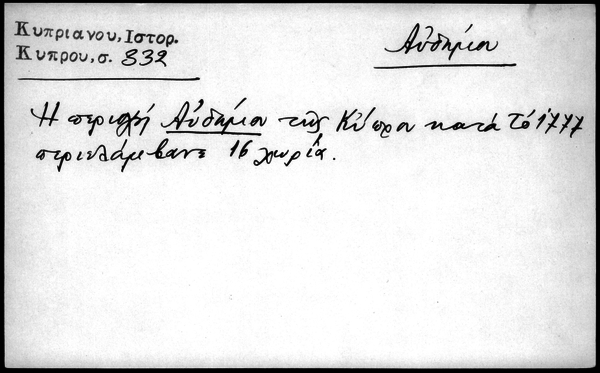 Κυπριανου, Ιστορ.
Κυπρου, σ. 332
Αὐδήμου
Ἡ περιοχή Αὐδήμου τῆς Κύπρου κατά τό 1777
περιελάμβανε 16 χωριά.